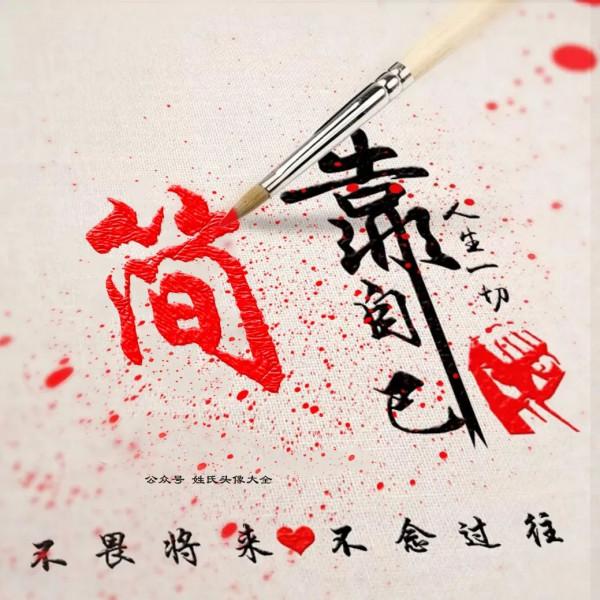 简
靠自己
人生一切
公众号 姓氏头像大全
不畏将来
不念过往